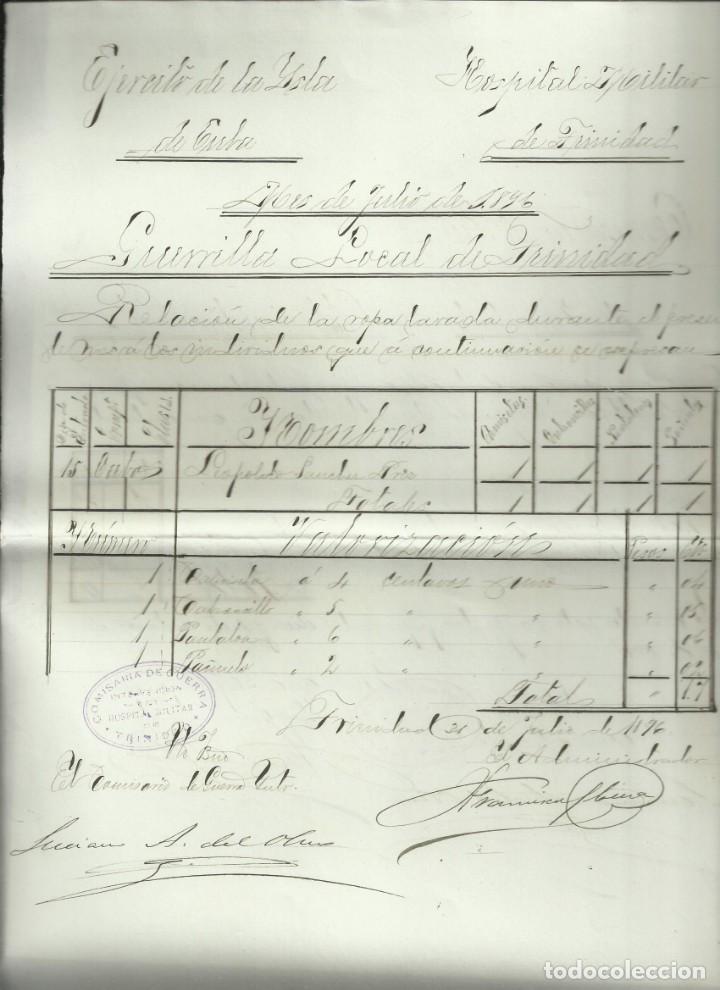 Ejercito de la Ysla
de Cuba
Hospital Militar
de Trinidad
Mes de Julio de 1896
Guerrilla Local de Trinidad
Relación de la ropa lavada durante el presen
te mes á los individuos que á continuación se expresan
Nombres
Camisetas
Calzoncillos
Pantalones
Pañuelos
15 Cabo Leopoldo Sanchez 1 1 1 1
Totales 1 1 1 1
Número Valorización Pesos
1 Camiseta á 4 centavos uno " 04
1 Calzoncillo " 5 " " 05
1 Pantalon " 6 " " 06
1 Pañuelo " 2 " " 02
Total " 17
COMISARIA DE GUERRA
HOSPITAL MILITAR
DE
TRINIDAD
Trinidad 31 de Julio de 1896
Vto Bno
El Administrador
El Comisario de Guerra Yntr.
Francisco
Luciano A. del Olmo
todocoleccion
todocoleccion.net